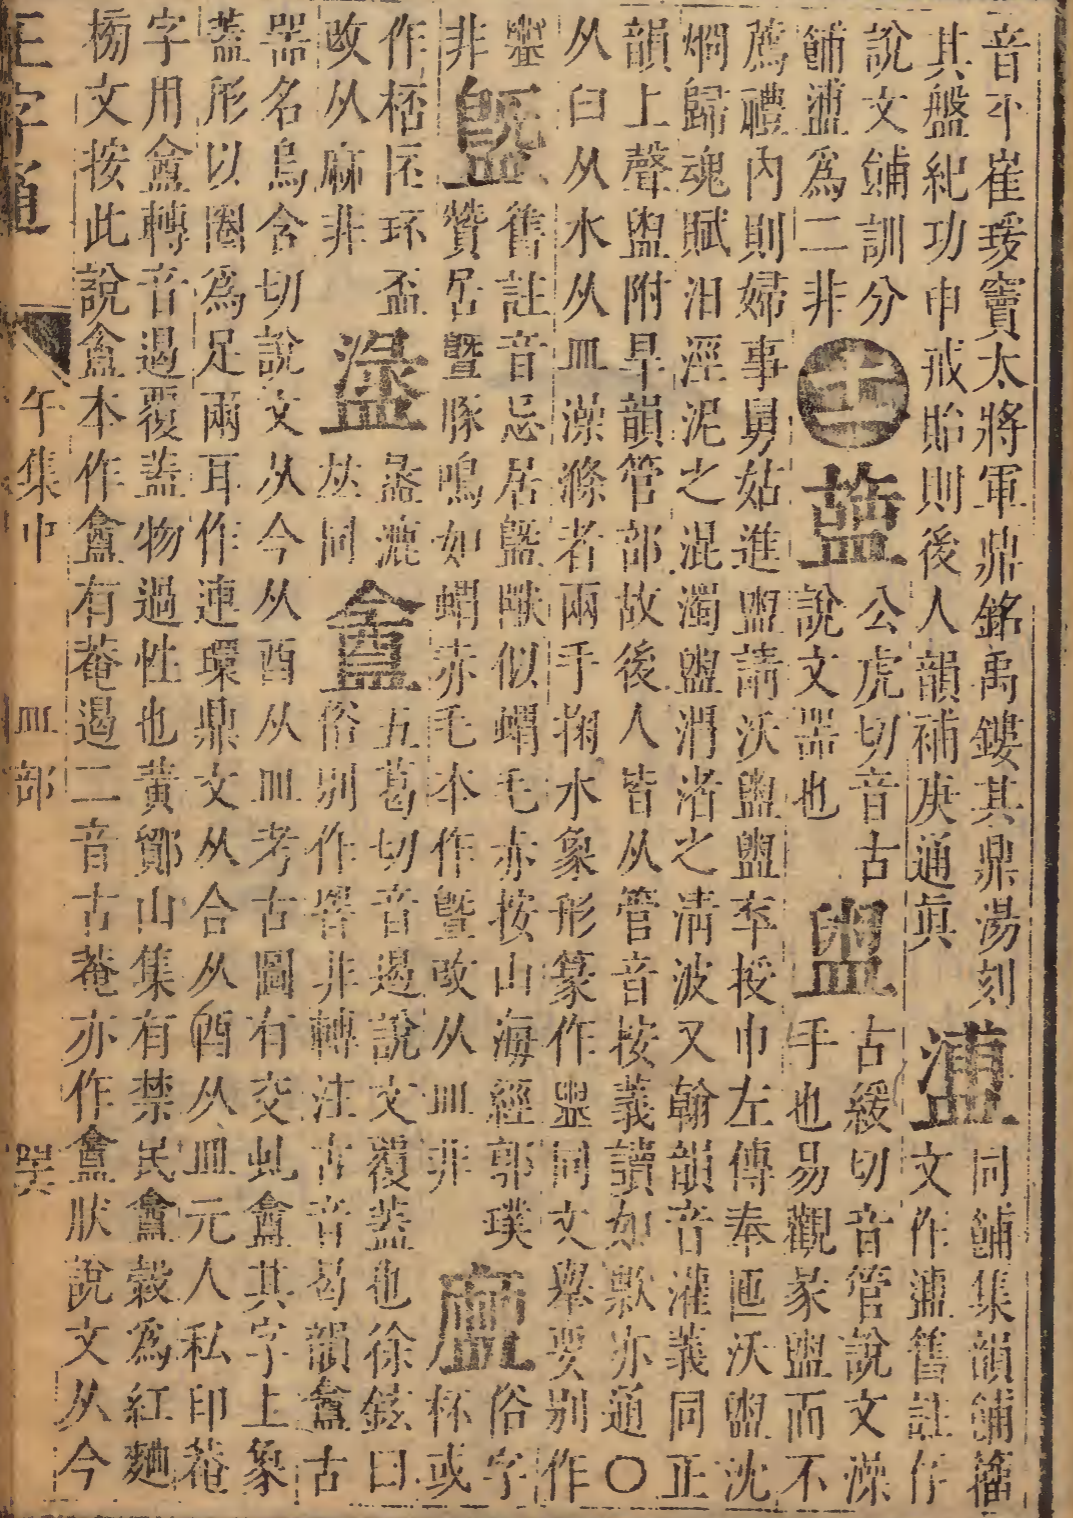 音卞崔瑗竇太將軍鼎銘禹鏤其鼎湯刻
其盤紀功申戒貽則後人韻補庚通眞
盙
同䀯集韻簠
文作盙舊註作
說文訓分
盙爲二非
十一
䀇
公虎切音古
說文器也
盥
古緩切音管說文澡
手也易觀彖盥而不
薦禮內則婦事舅姑進盥請沃盥盥卒授巾左傳奉匜沃盥沈
烱歸魂賦汨淫泥之混濁盥潤渚之清波又翰韻音灌義同正
韻上聲盥附旱韻管部故後人皆从管音按義讀如歎亦通〇
从臼从水从皿澡滌者兩手掬水象形篆作盥同文舉要別作
非
舊註音忌居獸似蝟毛赤按山海經郭璞
贊居曁豚鳴如蝟赤毛本作曁改从皿非
俗字
杯或
作桮匥环盃
改从麻非
盝
漉
同
盫
五葛切音遏說文覆蓋也徐鉉曰
俗別作罯非轉注古音曷韻盫古
器名烏含切說文从今从酉从皿考古圖有交虬盫其字上象
蓋形以圈爲足兩耳作連環鼎文从合从酉从皿元人私印菴
字用盫轉音遏覆蓋物過性也黃鄮山集有禁民盫穀爲紅麯
文按此說盫本作盫有菴遏二音古菴亦作盫肰說文从今
正字通
午集中
皿部